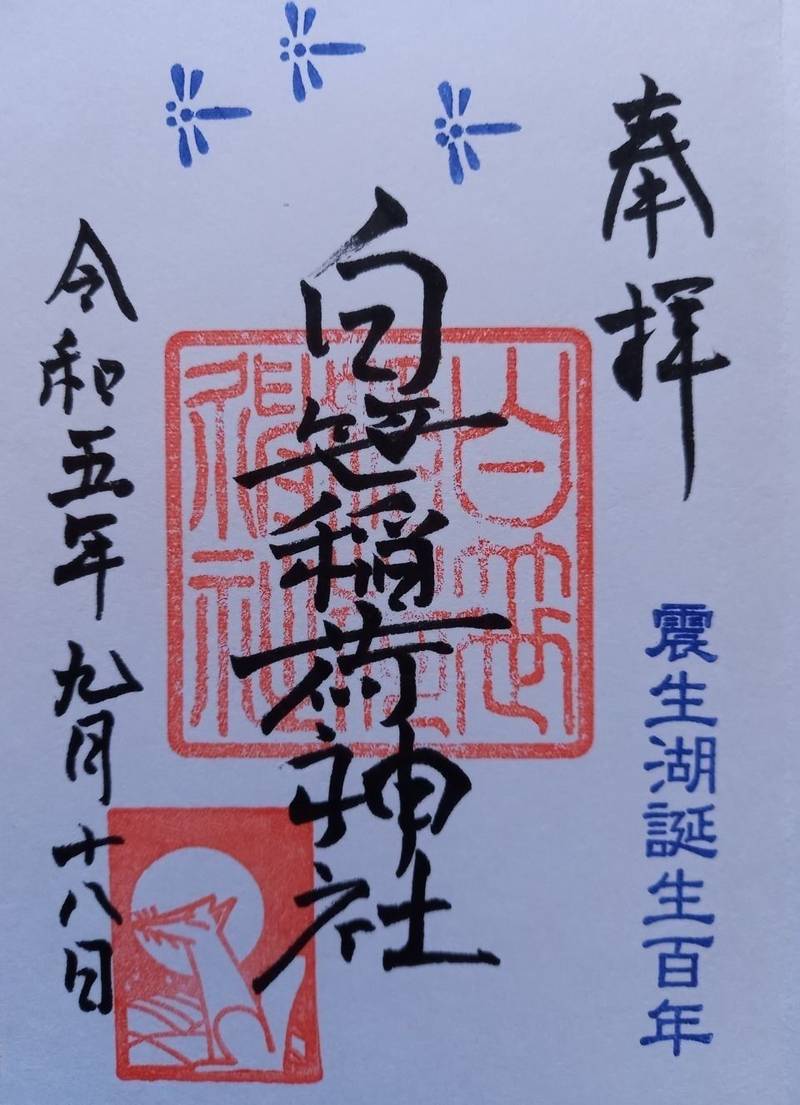 奉拝
震生湖誕生百年
白笹稲荷神社
令和五年九月十八日